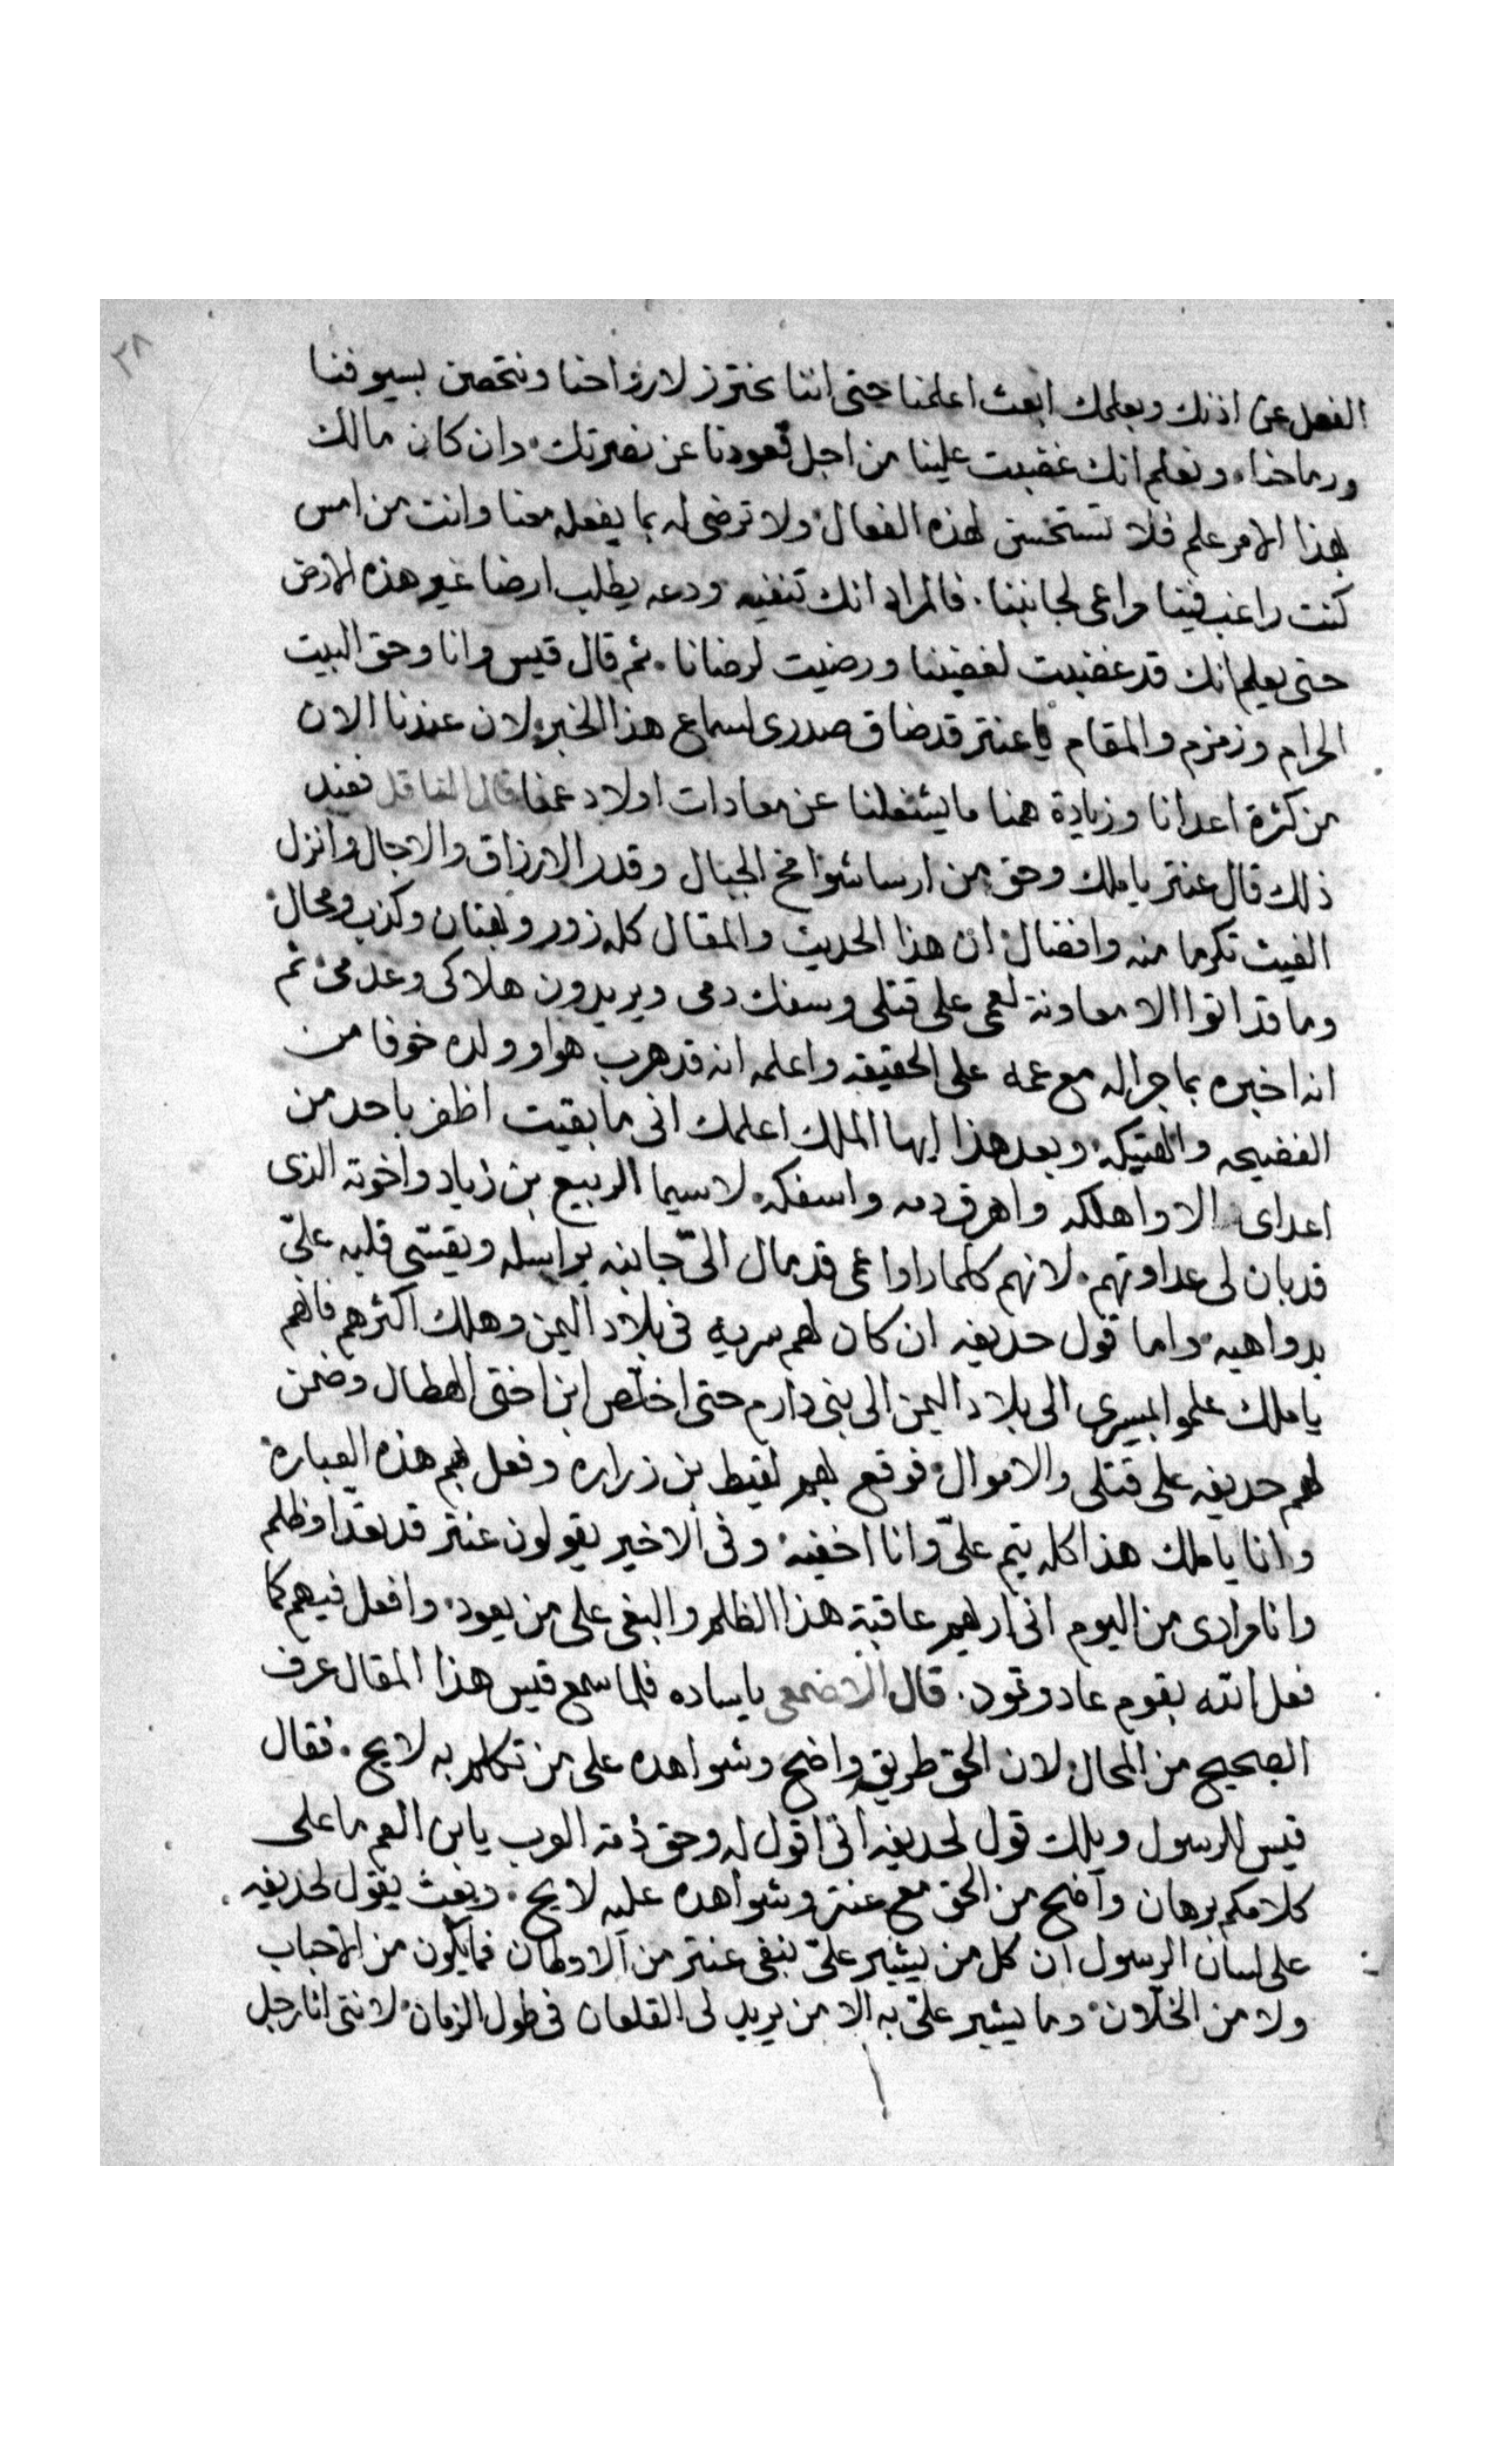 ٣٨
الفعل عن اذنك وبعلمك ابعث اعلمنا حتى اننا نحترز لارواحنا ونتحصن بسيوفنا
ورماحنا، ونعلم انك غضبت علينا من اجل قعودنا عن نصرتك، وان كان مالك
بهذا الامر علم فلا تستحسن لهذه الفعال، ولا ترضى له بما يفعله معنا وانت من امس
كنت راغب فينا مراعى لجاننا. فالمراد انك تنفيه ودعه يطلب ارضا غير هذه الارض
حتى يعلم انك قد غضبت لغضبنا ورضيت لرضانا. ثم قال قيس وانا وحق البيت
الحرام وزمزم والمقام يا عنتر قد ضاق صدرى لسماع هذا الخبر لان عندنا الان
من كثرة اعدانا وزيادة همنا ما يشغلنا عن معادات اولاد عمنا قال الناقل فعند
ذلك قال عنتر يا ملك وحق من ارسا شوامخ الجبال وقدر الارزاق والاجال وانزل
الغيث تكرما منه وافضال، ان هذا الحديث والمقال كله زور وبهتان وكذب ومحال،
وما قد اتوا الا معاونة لعمى على قتلى وسفك دمى ويريدون هلاكى وعدمى، ثم
انه اخبره بما جرا له مع عمه على الحقيقه واعلمه انه قد هرب هوا وولده خوفا من
الفضيحه والهتيكه، وبعد هذا ايها الملك اعلمك انى ما بقيت اظفر باحد من
اعداى الا واهلكه واهرق دمه واسفكه، لا سيما الربيع بن زياد واخوته الذى
قد بان لى عداوتهم، لانهم كلما راوا عمى قد مال الىّ جانبه يراسله ويقسّى قلبه علىّ
بدواهيه، واما قول حديفه ان كان لهم سريه فى بلاد اليمن وهلك اكثرهم فانهم
يا ملك علموا بمسيرى الى بلاد اليمن الى بنى دارم حتى اخلّص ابن اختى الهطال وضمن
لهم حديفه على قتلى والاموال، فوقع بهم لقيط بن زراره وفعل بهم هذه العباره،
وانا يا ملك هذا كله يتم علىّ وانا اخفيه، وفى الاخير يقولون عنتر قد تعدا وظلم
وانا مرادى من اليوم انى اريهم عاقبة هذا الظلم والبغى على من يعود، وافعل فيهم كما
فعل الله بقوم عاد وثمود. قال الاصمعى يا ساده فلما سمع قيس هذا المقال عرف
الصحيح من المحال، لان الحق طريق واضح وشواهده على من تكلم به لايح. فقال
قيس للرسول ويلك قول لحديفه انى اقول له وحق ذمة العرب يا بن العم ما على
كلامكم برهان واضح من الحق مع عنتر وشواهده عليه لايح. وبعث يقول لحديفه
على لسان الرسول ان كل من يشير علىّ بنفى عنتر من الاوطان فما يكون من الاحباب
ولا من الخلّان، وما يشير علىّ به الا من يريد لى القلعان فى طول الزمان، لاننى انا رجل